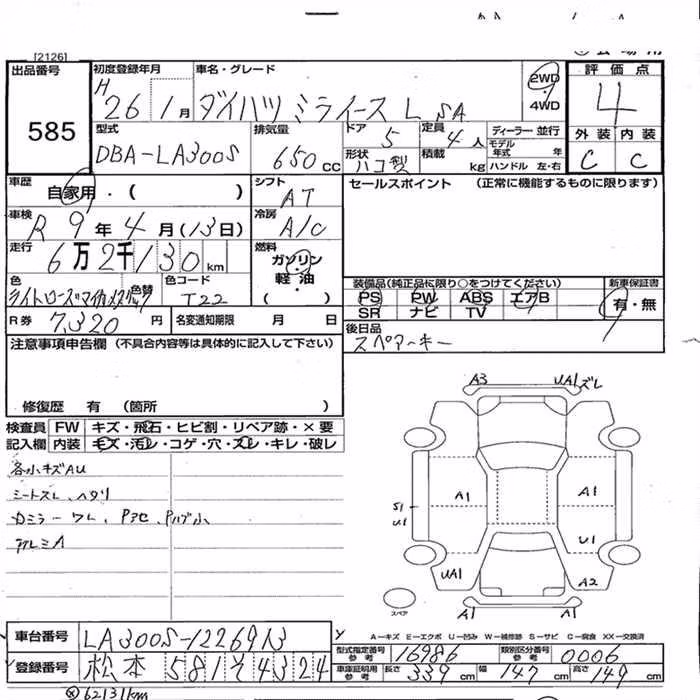 [2126]
出品番号
585
初度登録年月
H
26 1月
車名・グレード
ダイハツ ミライース L SA
2WD
・
4WD
評価点
4
外装 内装
C C
型式
DBA-LA300S
排気量
650 CC
ドア
5
定員
4人
ディーラー 並行
モデル年式 年
形状
ハコ型
積載 kg
ハンドル 左・右
車歴
自家用・( )
シフト
AT
セールスポイント (正常に機能するものに限ります)
車検
R9年4月(13日)
冷房
A/C
走行
6万2千130km
燃料
ガソリン
・
軽油
( )
色
ライトローズマイカメタリック
色替
色コード
T22
装備品(純正品に限り○をつけてください)
新車保証書
有・無
PS PW ABS エアB
SR ナビ TV
R券 7,320円
名変通知期限 月 日
後日品
スペアーキー
注意事項申告欄 (不具合内容等は具体的に記入して下さい)
修復歴 有 (箇所 )
検査員
記入欄
FW キズ・飛石・ヒビ割・リペア跡・×要
内装 キズ・汚レ・コゲ・穴・スレ・キレ・破レ
各小キズAU
シートスレ、ヘタリ
カミラー ワレ、
アルミA
A3
UA1ズレ
A1
A1
S1
U1
U1
UA1
A2
A1
A1
スペア
A−キズ E−エクボ U−凹み W−補修跡 S−サビ C−腐食 XX−交換済
車台番号
LA300S-1226913
型式指定番号
参考
16986
類別区分番号
参考
0006
登録番号
松本 581そ4324
車庫証明用
参考
長さ
339cm
幅
147cm
高さ
149cm
※62131km